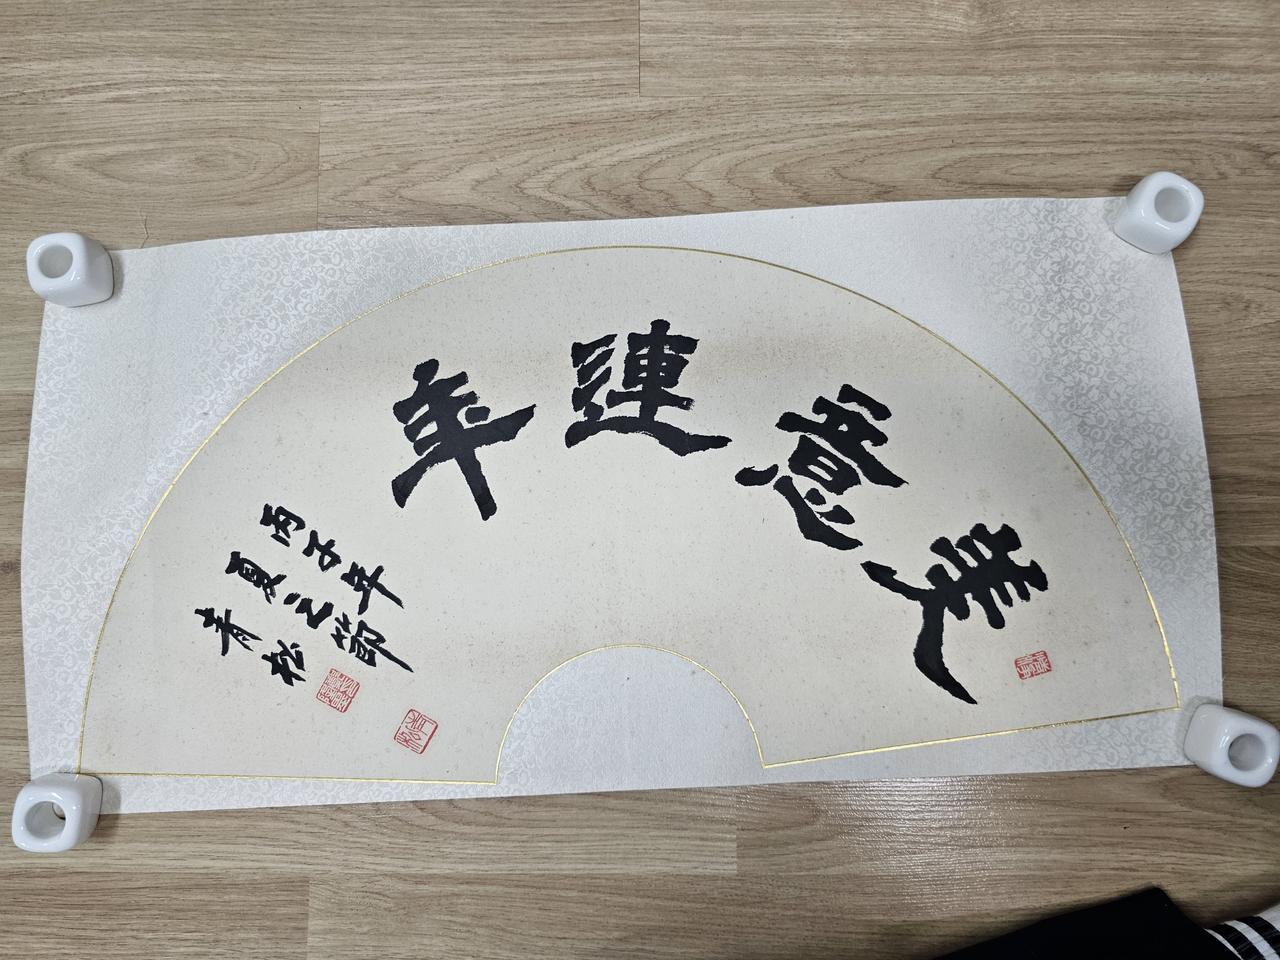 美意連年
丙子年
夏之節
青松